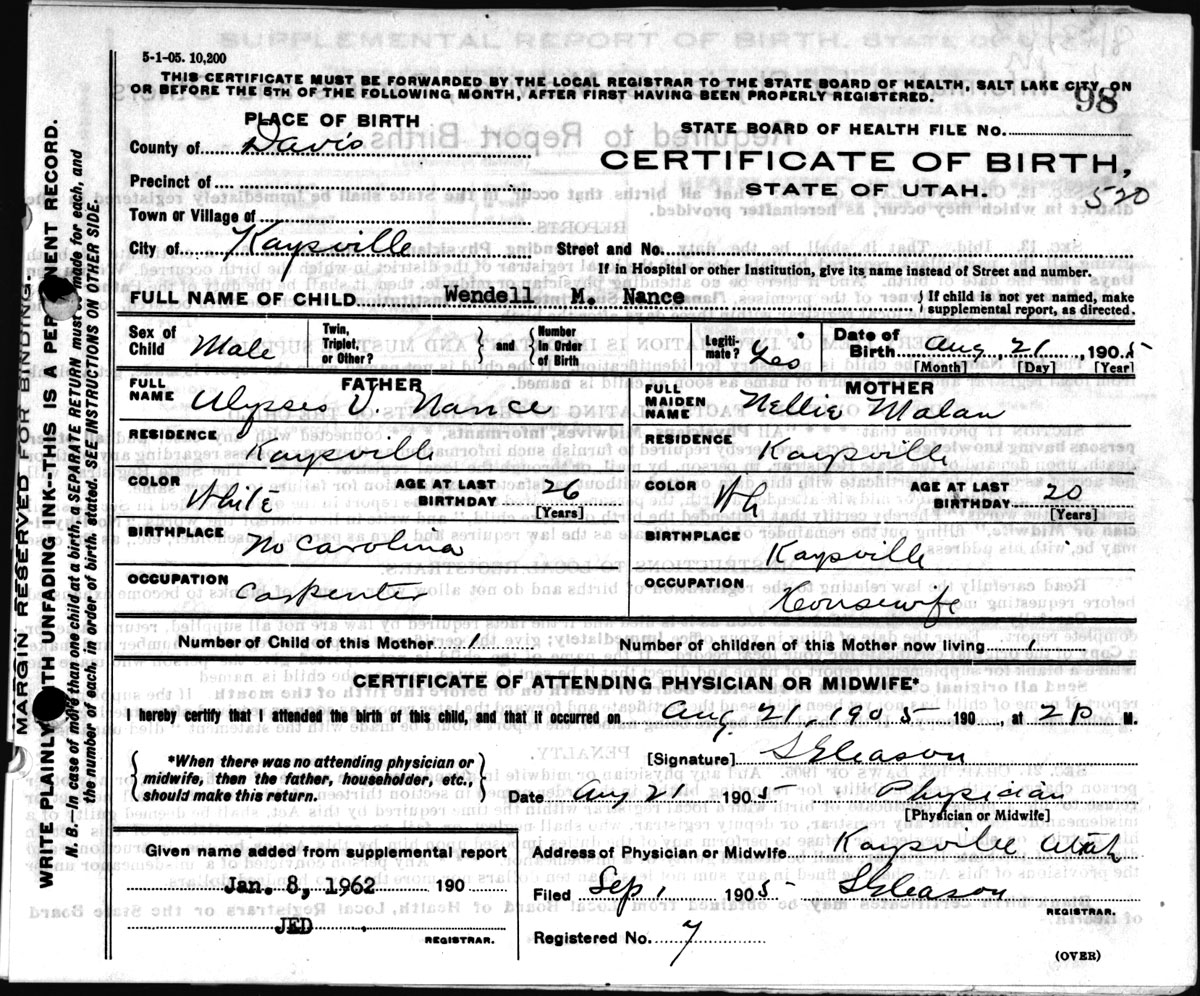 5-1-05. 10,200
THIS CERTIFICATE MUST BE FORWARDED BY THE LOCAL REGISTRAR TO THE STATE BOARD OF HEALTH, SALT LAKE CITY, ON
OR BEFORE THE 5TH OF THE FOLLOWING MONTH, AFTER FIRST HAVING BEEN PROPERLY REGISTERED.
98
PLACE OF BIRTH
STATE BOARD OF HEALTH FILE No.
County of Davis
CERTIFICATE OF BIRTH,
Precinct of
STATE OF UTAH.
520
Town or Village of
City of Kaysville Street and No.
If in Hospital or other Institution, give its name instead of Street and number.
FULL NAME OF CHILD Wendell M. Nance
If child is not yet named, make
supplemental report, as directed.
Sex of
Child Male
Twin,
Triplet,
or Other?
and
Number
in Order
of Birth
Legiti-
mate? Yes
Date of
Birth Aug 21, 1905
[Month] [Day] [Year]
FATHER
FULL
NAME Ulysses V. Nance
MOTHER
FULL
MAIDEN
NAME Nellie Malan
RESIDENCE Kaysville
RESIDENCE Kaysville
COLOR White AGE AT LAST
BIRTHDAY 26
[Years]
COLOR Wh AGE AT LAST
BIRTHDAY 20
[Years]
BIRTHPLACE No Carolina
BIRTHPLACE Kaysville
OCCUPATION Carpenter
OCCUPATION Housewife
Number of Child of this Mother 1 Number of children of this Mother now living 1
CERTIFICATE OF ATTENDING PHYSICIAN OR MIDWIFE*
I hereby certify that I attended the birth of this child, and that it occurred on Aug 21 1905 190 , at 2 p M.
*When there was no attending physician or
midwife, then the father, householder, etc.,
should make this return.
[Signature] S Gleason
Date Aug 21 1905 Physician
[Physician or Midwife]
Given name added from supplemental report
Jan. 8, 1962 190
JED
REGISTRAR.
Address of Physician or Midwife Kaysville Utah
Filed Sep 1 1905 S Gleason
REGISTRAR.
Registered No. 7
(OVER)
MARGIN RESERVED FOR BINDING.
WRITE PLAINLY WITH UNFADING INK--THIS IS A PERMANENT RECORD.
N. B.—In case of more than one child at a birth, a SEPARATE RETURN must be made for each, and
the number of each, in order of birth, stated. SEE INSTRUCTIONS ON OTHER SIDE.